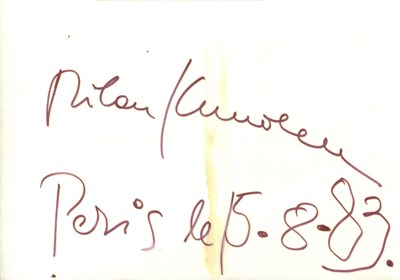 Milan Kundera
Paris le 15.8.83.